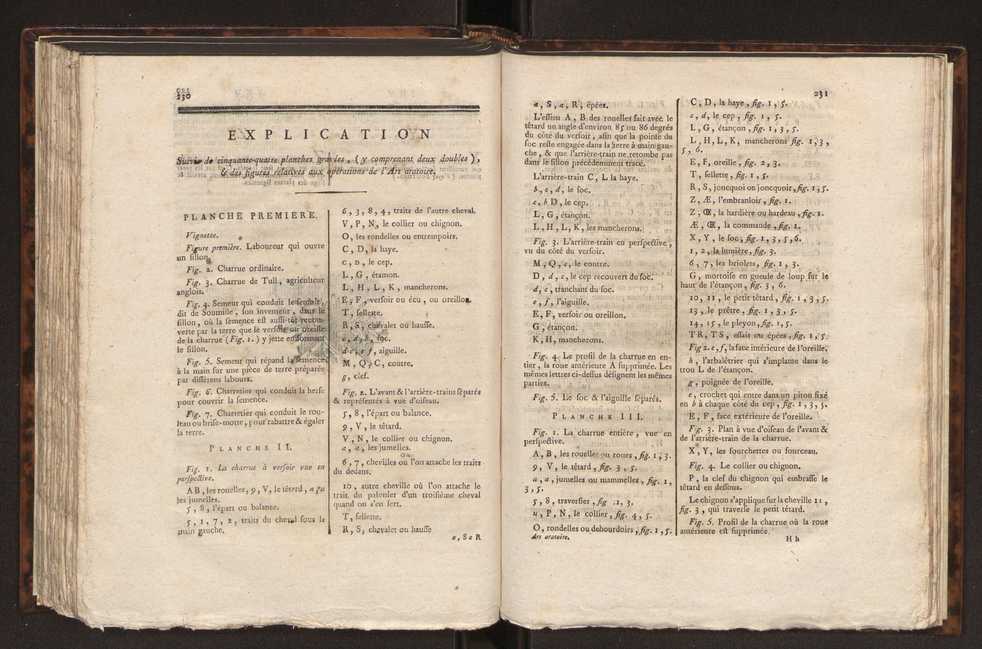 230
EXPLICATION
Suivie de cinquante-quatre planches gravées, (y comprenant deux doubles),
& des figures relatives aux opérations de l'Art aratoire.
PLANCHE PREMIERE.
Vignette.
Figure première. Laboureur qui ouvre
un sillon.
Fig. 2. Charrue ordinaire.
Fig. 3. Charrue de Tull, agriculteur
anglois.
Fig. 4. Semeur qui conduit le semoir,
dit de Soumille, son inventeur, dans le
sillon, où la semence est aussi-tôt recou-
verte par la terre que le versoir ou oreille
de la charrue (Fig. 1.) y jette en formant
le sillon.
Fig. 5. Semeur qui répand la semence
à la main sur une pièce de terre préparée
par différens labours.
Fig. 6. Charretier qui conduit la herse
pour couvrir la semence.
Fig. 7. Charretier qui conduit le rou-
leau ou brise-motte, pour rabattre & égaler
la terre.
PLANCHE II.
Fig. 1. La charrue à versoir vue en
perspective.
AB, les rouelles, 9, V, le tétard, a g u
les jumelles.
5, 8, l'épart ou balance.
5, 1, 7, 2, traits du cheval sous la
main gauche.
6, 3, 8, 4, traits de l'autre cheval.
V, P, N, le collier ou chignon.
O, les rondelles ou entrempoirs.
C, D, la haye.
c, D, le cep.
L, G, étamon.
L, H, L, K, mancherons.
E, F, versoir ou écu, ou oreillon.
T, sellette.
R, S, chevalet ou hausse.
soc.
d, e, f, aiguille.
M, Q, C, contre.
g, clef.
Fig. 2. L'avant & l'arrière-trains séparés
& représentés à vue d'oiseau.
5, 8, l'épart ou balance.
9, V, le tétard.
V, N, le collier ou chignon.
a, a, les jumelles.
6, 7, chevilles où l'on attache les traits
du dedans.
10, autre cheville où l'on attache le
trait du palonier d'un troisième cheval
quand on s'en sert.
T, sellette.
R, S, chevalet ou hausse
a, S a R
231
a, S, a, R, épées.
L'essieu A, B des rouelles fait avec le
tétard un angle d'environ 85 ou 86 degrés
du côté du versoir, afin que la pointe du
soc reste engagée dans la terre à main gau-
che, & que l'arrière-train ne retombe pas
dans le sillon précédemment tracé.
L'arrière-train C, L la haye.
b, c, d, le soc.
c, b D, le cep.
L, G, étançon.
L, H, L, K, les mancherons.
Fig. 3. L'arrière-train en perspective,
vu du côté du versoir.
M, Q, c, le contre.
D, d, c, le cep recouvert du soc.
d, c, tranchant du soc.
e, f, l'aiguille.
E, F, versoir ou oreillon.
G, étançon.
K, H, mancherons.
Fig. 4. Le profil de la charrue en en-
tier, la roue antérieure A supprimée. Les
mêmes lettres ci-dessus désignent les mêmes
parties.
Fig. 5. Le soc & l'aiguille séparés.
PLANCHE III.
Fig. 1. La charrue entière, vue en
perspective.
A, B, les rouelles ou roues, fig. 1, 3.
9, V, le tétard, fig. 3, 5.
a, a, jumelles ou mammelles, fig. 1,
3, 5.
5, 8, traversier, fig. 1, 3.
u, P, N, le collier, fig. 4, 5.
O, rondelles ou debourdoirs, fig. 1, 5.
des aratoire.
C, D, la haye, fig. 1, 5.
c, d, le cep, fig. 1, 5.
L, G, étançon, fig. 1, 3, 5.
L, H, L, K, mancherons fig. 1, 3,
5, 6.
E, F, oreille, fig. 2, 3.
T, sellette, fig. 1, 5.
R, S, jonequoi ou joncquoir, fig. 1, 5.
Z, Æ, l'embranloir, fig. 1.
Z, Œ, la hardière ou hardeau, fig. 1.
Æ, Œ, la commande, fig. 1.
X, Y, le soc, fig. 1, 3, 5, 6.
1, 2, la lumière, fig. 3.
6, 7, les briolets, fig. 1, 3.
G, mortoise en gueule de loup sur le
haut de l'étançon, fig. 3, 6.
10, 11, le petit tétard, fig. 1, 3, 5.
13, le prêtre, fig. 1, 3, 5.
14, 15, le pleyon, fig. 1, 5.
TR, TS, essais ou épées, fig. 1, 5.
Fig 2. e, f, la face intérieure de l'oreille.
h, l'arbalêtrier qui s'implante dans le
trou L de l'étançon.
g, poignée de l'oreille.
e, crochet qui entre dans un piton fixé
en b à chaque côté du cep, fig. 1, 3, 5.
E, F, face extérieure de l'oreille.
Fig. 3. Plan à vue d'oiseau de l'avant &
de l'arrière-train de la charrue.
X, Y, les fourchettes ou fourceau.
Fig. 4. Le collier ou chignon.
P, la clef du chignon qui embrasse le
tétard en dessous.
Le chignon s'applique sur la cheville 11,
fig. 3, qui traverse le petit tétard.
Fig. 5. Profil de la charrue où la roue
antérieure est supprimée.
H h